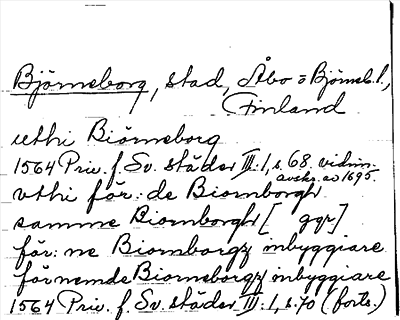 Björneborg, stad, Åbo o Björneb. l.,
Finland
uthi Biörneborg
1564 Priv. f. Sv. städer III:1, s. 68. vidim.
avskr. av 1695.
vthi för: de Biornborgh
samme Biornborgh [ ggr]
för: ne Biornborgz inbyggiare
förnemde Biorneborgz inbyggiare
1564 Priv. f. Sv. städer III:1, s. 70 (forts.)